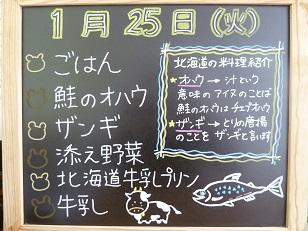 1月25日(火)
ごはん
鮭のオハウ
ザンギ
添え野菜
北海道牛乳プリン
牛乳し
北海道の料理紹介
★オハウ→汁という
意味のアイヌのことば
鮭のオハウはチェプオハウ
★ザンギ→とりの唐揚
のことをザンギと言います